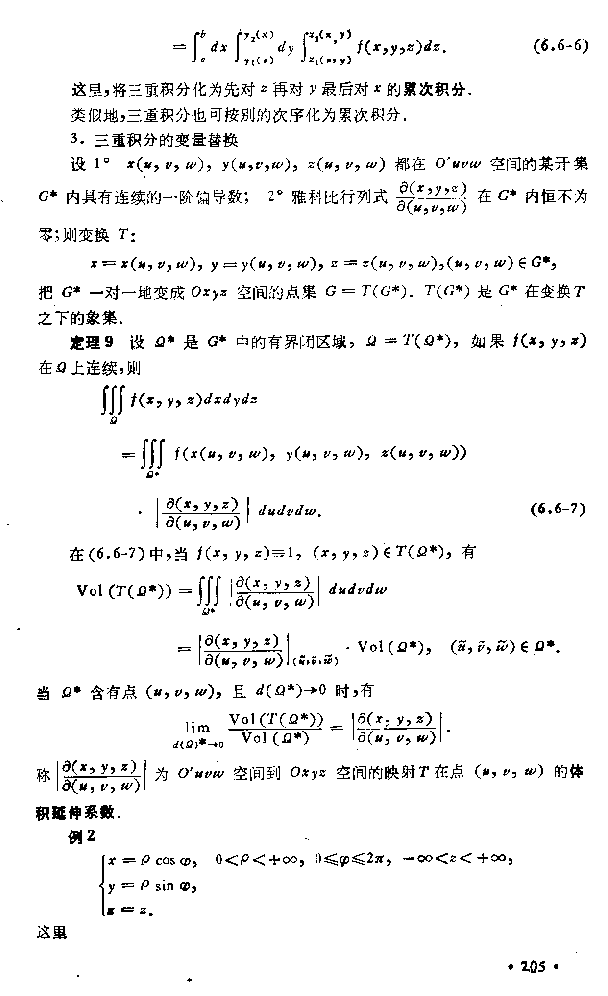 = ∫_a^b dx ∫_{y₁(x)}^{y₂(x)} dy ∫_{z₁(x,y)}^{z₂(x,y)} f(x,y,z)dz. (6.6-6)
这里,将三重积分化为先对 z 再对 y 最后对 x 的累次积分.
类似地,三重积分也可按别的次序化为累次积分.
3. 三重积分的变量替换
设 1° x(u, v, w), y(u,v,w), z(u, v, w) 都在 O′uvw 空间的某开集
G* 内具有连续的一阶偏导数; 2° 雅科比行列式 ∂(x,y,z)/∂(u,v,w) 在 G* 内恒不为
零;则变换 T:
x=x(u, v, w), y=y(u, v, w), z=z(u, v, w),(u, v, w)∈G*,
把 G* 一对一地变成 Oxyz 空间的点集 G = T(G*). T(G*) 是 G* 在变换 T
之下的象集.
定理 9 设 Ω* 是 G* 中的有界闭区域, Ω = T(Ω*), 如果 f(x, y, z)
在 Ω 上连续,则
∭_Ω f(x, y, z)dxdydz
= ∭_{Ω*} f(x(u, v, w), y(u, v, w), z(u, v, w))
· |∂(x, y, z)/∂(u, v, w)| dudvdw. (6.6-7)
在(6.6-7)中,当 f(x, y, z)≡1, (x, y, z)∈T(Ω*), 有
Vol (T(Ω*)) = ∭_{Ω*} |∂(x, y, z)/∂(u, v, w)| dudvdw
= |∂(x, y, z)/∂(u, v, w)|_{(ũ,ṽ,w̃)} · Vol(Ω*), (ũ, ṽ, w̃)∈Ω*.
当 Ω* 含有点 (u, v, w), 且 d(Ω*)→0 时,有
lim_{d(Ω)*→0} Vol(T(Ω*))/Vol(Ω*) = |∂(x, y, z)/∂(u, v, w)|.
称 |∂(x, y, z)/∂(u, v, w)| 为 O′uvw 空间到 Oxyz 空间的映射 T 在点 (u, v, w) 的体
积延伸系数.
例 2
{x = ρ cos φ, 0<ρ<+∞, 0≤φ≤2π, −∞<z<+∞,
y = ρ sin φ,
z = z.
这里
• 205 •